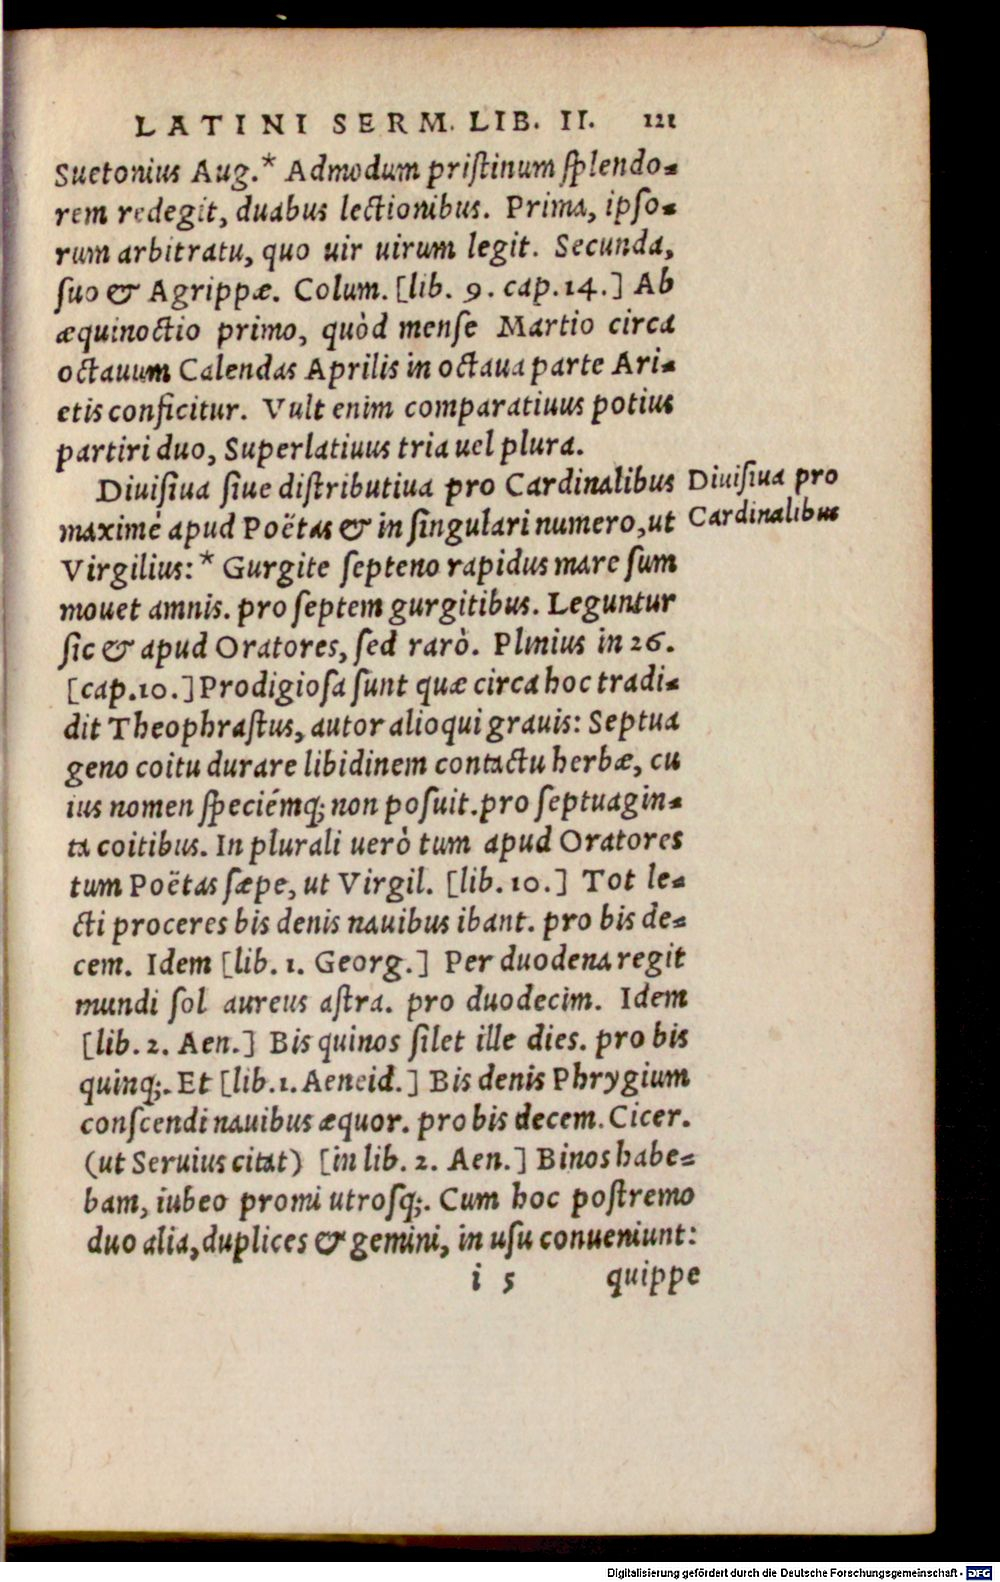 LATINI SERM. LIB. II. 121
Suetonius Aug.* Admodum pristinum splendo-
rem redegit, duabus lectionibus. Prima, ipso-
rum arbitratu, quo uir uirum legit. Secunda,
suo & Agrippæ. Colum. [lib. 9. cap. 14.] Ab
æquinoctio primo, quòd mense Martio circa
octauum Calendas Aprilis in octaua parte Ari-
etis conficitur. Vult enim comparatiuus potius
partiri duo, Superlatiuus tria uel plura.
Diuisiua siue distributiua pro Cardinalibus
Diuisiua pro
Cardinalibus
maximè apud Poëtas & in singulari numero, ut
Virgilius:* Gurgite septeno rapidus mare sum
mouet amnis. pro septem gurgitibus. Leguntur
sic & apud Oratores, sed rarò. Plinius in 26.
[cap.10.] Prodigiosa sunt quæ circa hoc tradi-
dit Theophrastus, autor alioqui grauis: Septua
geno coitu durare libidinem contactu herbæ, cu
ius nomen speciémq; non posuit. pro septuagin-
ta coitibus. In plurali uerò tum apud Oratores
tum Poëtas sæpe, ut Virgil. [lib. 10.] Tot le-
cti proceres bis denis nauibus ibant. pro bis de-
cem. Idem [lib. 1. Georg.] Per duodena regit
mundi sol aureus astra. pro duodecim. Idem
[lib. 2. Aen.] Bis quinos silet ille dies. pro bis
quinq;. Et [lib. 1. Aeneid.] Bis denis Phrygium
conscendi nauibus æquor. pro bis decem. Cicer.
(ut Seruius citat) [in lib. 2. Aen.] Binos habe-
bam, iubeo promi utrosq;. Cum hoc postremo
duo alia, duplices & gemini, in usu conueniunt:
i 5 quippe
Digitalisierung gefördert durch die Deutsche Forschungsgemeinschaft - DFG